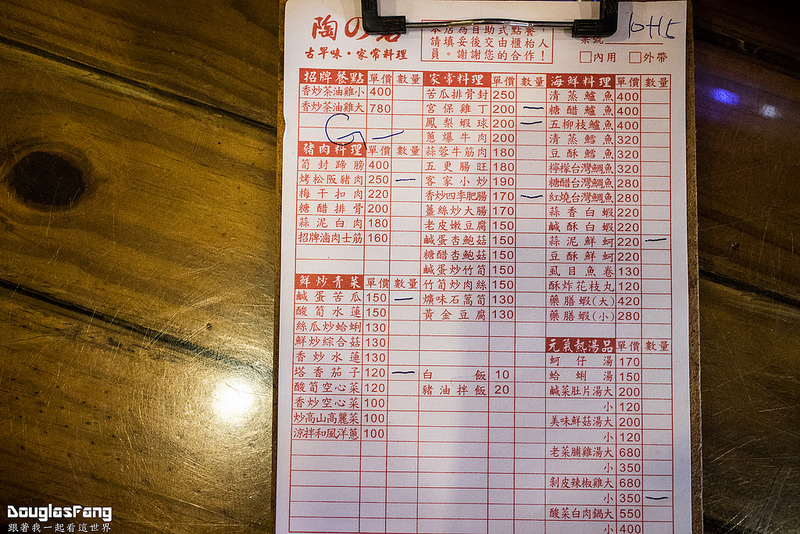 陶の
古早味·家常料理
本店為自助式點餐
請填妥後交由櫃枱人
員。謝謝您的合作!
10H5
□內用 □外帶
招牌餐點 單價 數量
香炒茶油雞小 400
香炒茶油雞大 780
豬肉料理 單價 數量
筍封蹄膀 400
烤松阪豬肉 250 一
梅干扣肉 220
糖醋排骨 200
蒜泥白肉 180
招牌滷肉士筋 160
鮮炒青菜 單價 數量
鹹蛋苦瓜 150 一
酸筍水蓮 150
絲瓜炒蛤蜊 130
鮮炒綜合菇 130
香炒水蓮 130
塔香茄子 120 一
酸筍空心菜 120
香炒空心菜 100
炒高山高麗菜 100
涼拌和風洋蔥 100
家常料理 單價 數量
苦瓜排骨封 250
宮保雞丁 200 一
鳳梨蝦球 200 一
蔥爆牛肉 200
蒜蓉牛筋肉 180
五更腸旺 180
客家小炒 190
香炒四季肥腸 170 一
薑絲炒大腸 170
老皮嫩豆腐 150
鹹蛋杏鮑菇 150
糖醋杏鮑菇 150
鹹蛋炒竹筍 150
竹筍炒肉絲 150
爌味石萵筍 130
黃金豆腐 130
白飯 10
豬油拌飯 20
海鮮料理 單價 數量
清蒸鱸魚 400
糖醋鱸魚 400
五柳枝鱸魚 400
清蒸鱈魚 320
豆酥鱈魚 320
檸檬台灣鯛魚 320
糖醋台灣鯛魚 280
紅燒台灣鯛魚 280
蒜香白蝦 220
鹹酥白蝦 220
蒜泥鮮蚵 220 一
豆酥鮮蚵 220
虱目魚卷 130
酥炸花枝丸 120
藥膳蝦(大) 420
藥膳蝦(小) 280
元氣熱湯品 單價 數量
蚵仔湯 170
蛤蜊湯 150
鹹菜肚片湯大 200
小 120
美味鮮菇湯大 200
小 120
老菜脯雞湯大 680
小 350
剝皮辣椒雞大 680
小 350 一
酸菜白肉鍋大 550
小 400
DouglasFang
跟著我一起看這世界